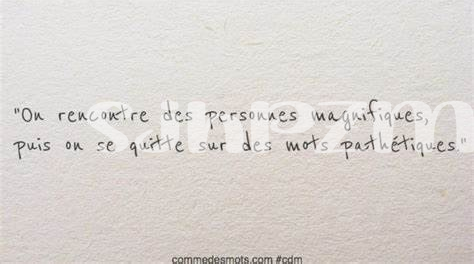 "On rencontre des personnes magnifiques,
puis on se quitte sur des mots pathétiques."
commedesmots.com #cdm